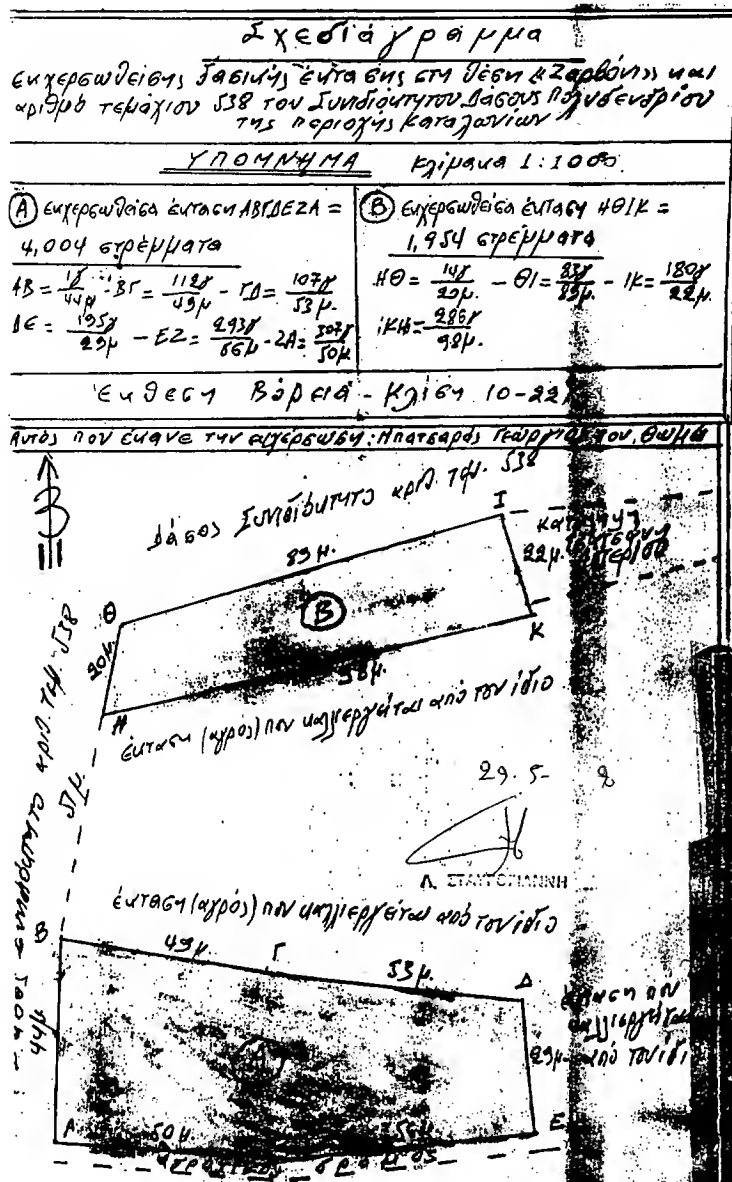 Σχεδιάγραμμα
εκχερσωθείσης δασικής έκτασης στη θέση «Ζαρβόνι» και
αριθμό τεμαχίου 538 του Συνιδιόκτητου Δάσους Πολυδενδρίου
της περιοχής Καταλωνίων
ΥΠΟΜΝΗΜΑ κλίμακα 1:1000
Α εκχερσωθείσα έκταση ΑΒΓΔΕΖΑ =
4,004 στρέμματα
ΑΒ = 1γ/44μ - ΒΓ = 112γ/49μ - ΓΔ = 107γ/53μ.
ΔΕ = 195γ/29μ - ΕΖ = 293γ/56μ - ΖΑ = 307γ/50μ
Β εκχερσωθείσα έκταση ΗΘΙΚ =
1,954 στρέμματα
ΗΘ = 14γ/20μ. - ΘΙ = 83γ/89μ. - ΙΚ = 180γ/22μ.
ΙΚΗ = 286γ/98μ.
Έκθεση Βόρεια - Κλίση 10-22
Αυτός που έκανε την εκχέρσωση: Μπατσαράς Γεώργιος του Θωμά
Δάσος Συνιδιόκτητο αριθ. τεμ. 538
Ι
89 μ.
22μ.
Θ
Β
Κ
20μ
98μ.
Η
έκταση (αγρός) που καλλιεργείται από τον ίδιο
αριθ. τεμ. 538
51 μ.
29. 5-
Λ. ΣΤΑΥΡΟΓΙΑΝΝΗ
έκταση (αγρός) που καλλιεργείται από τον ίδιο
Β
49μ.
Γ
53μ.
Δ
έκταση που
καλλιεργείται
29μ. από τον ίδι
44μ
Α
Α
50μ
56μ.
Ε
αγροτικός δρόμος